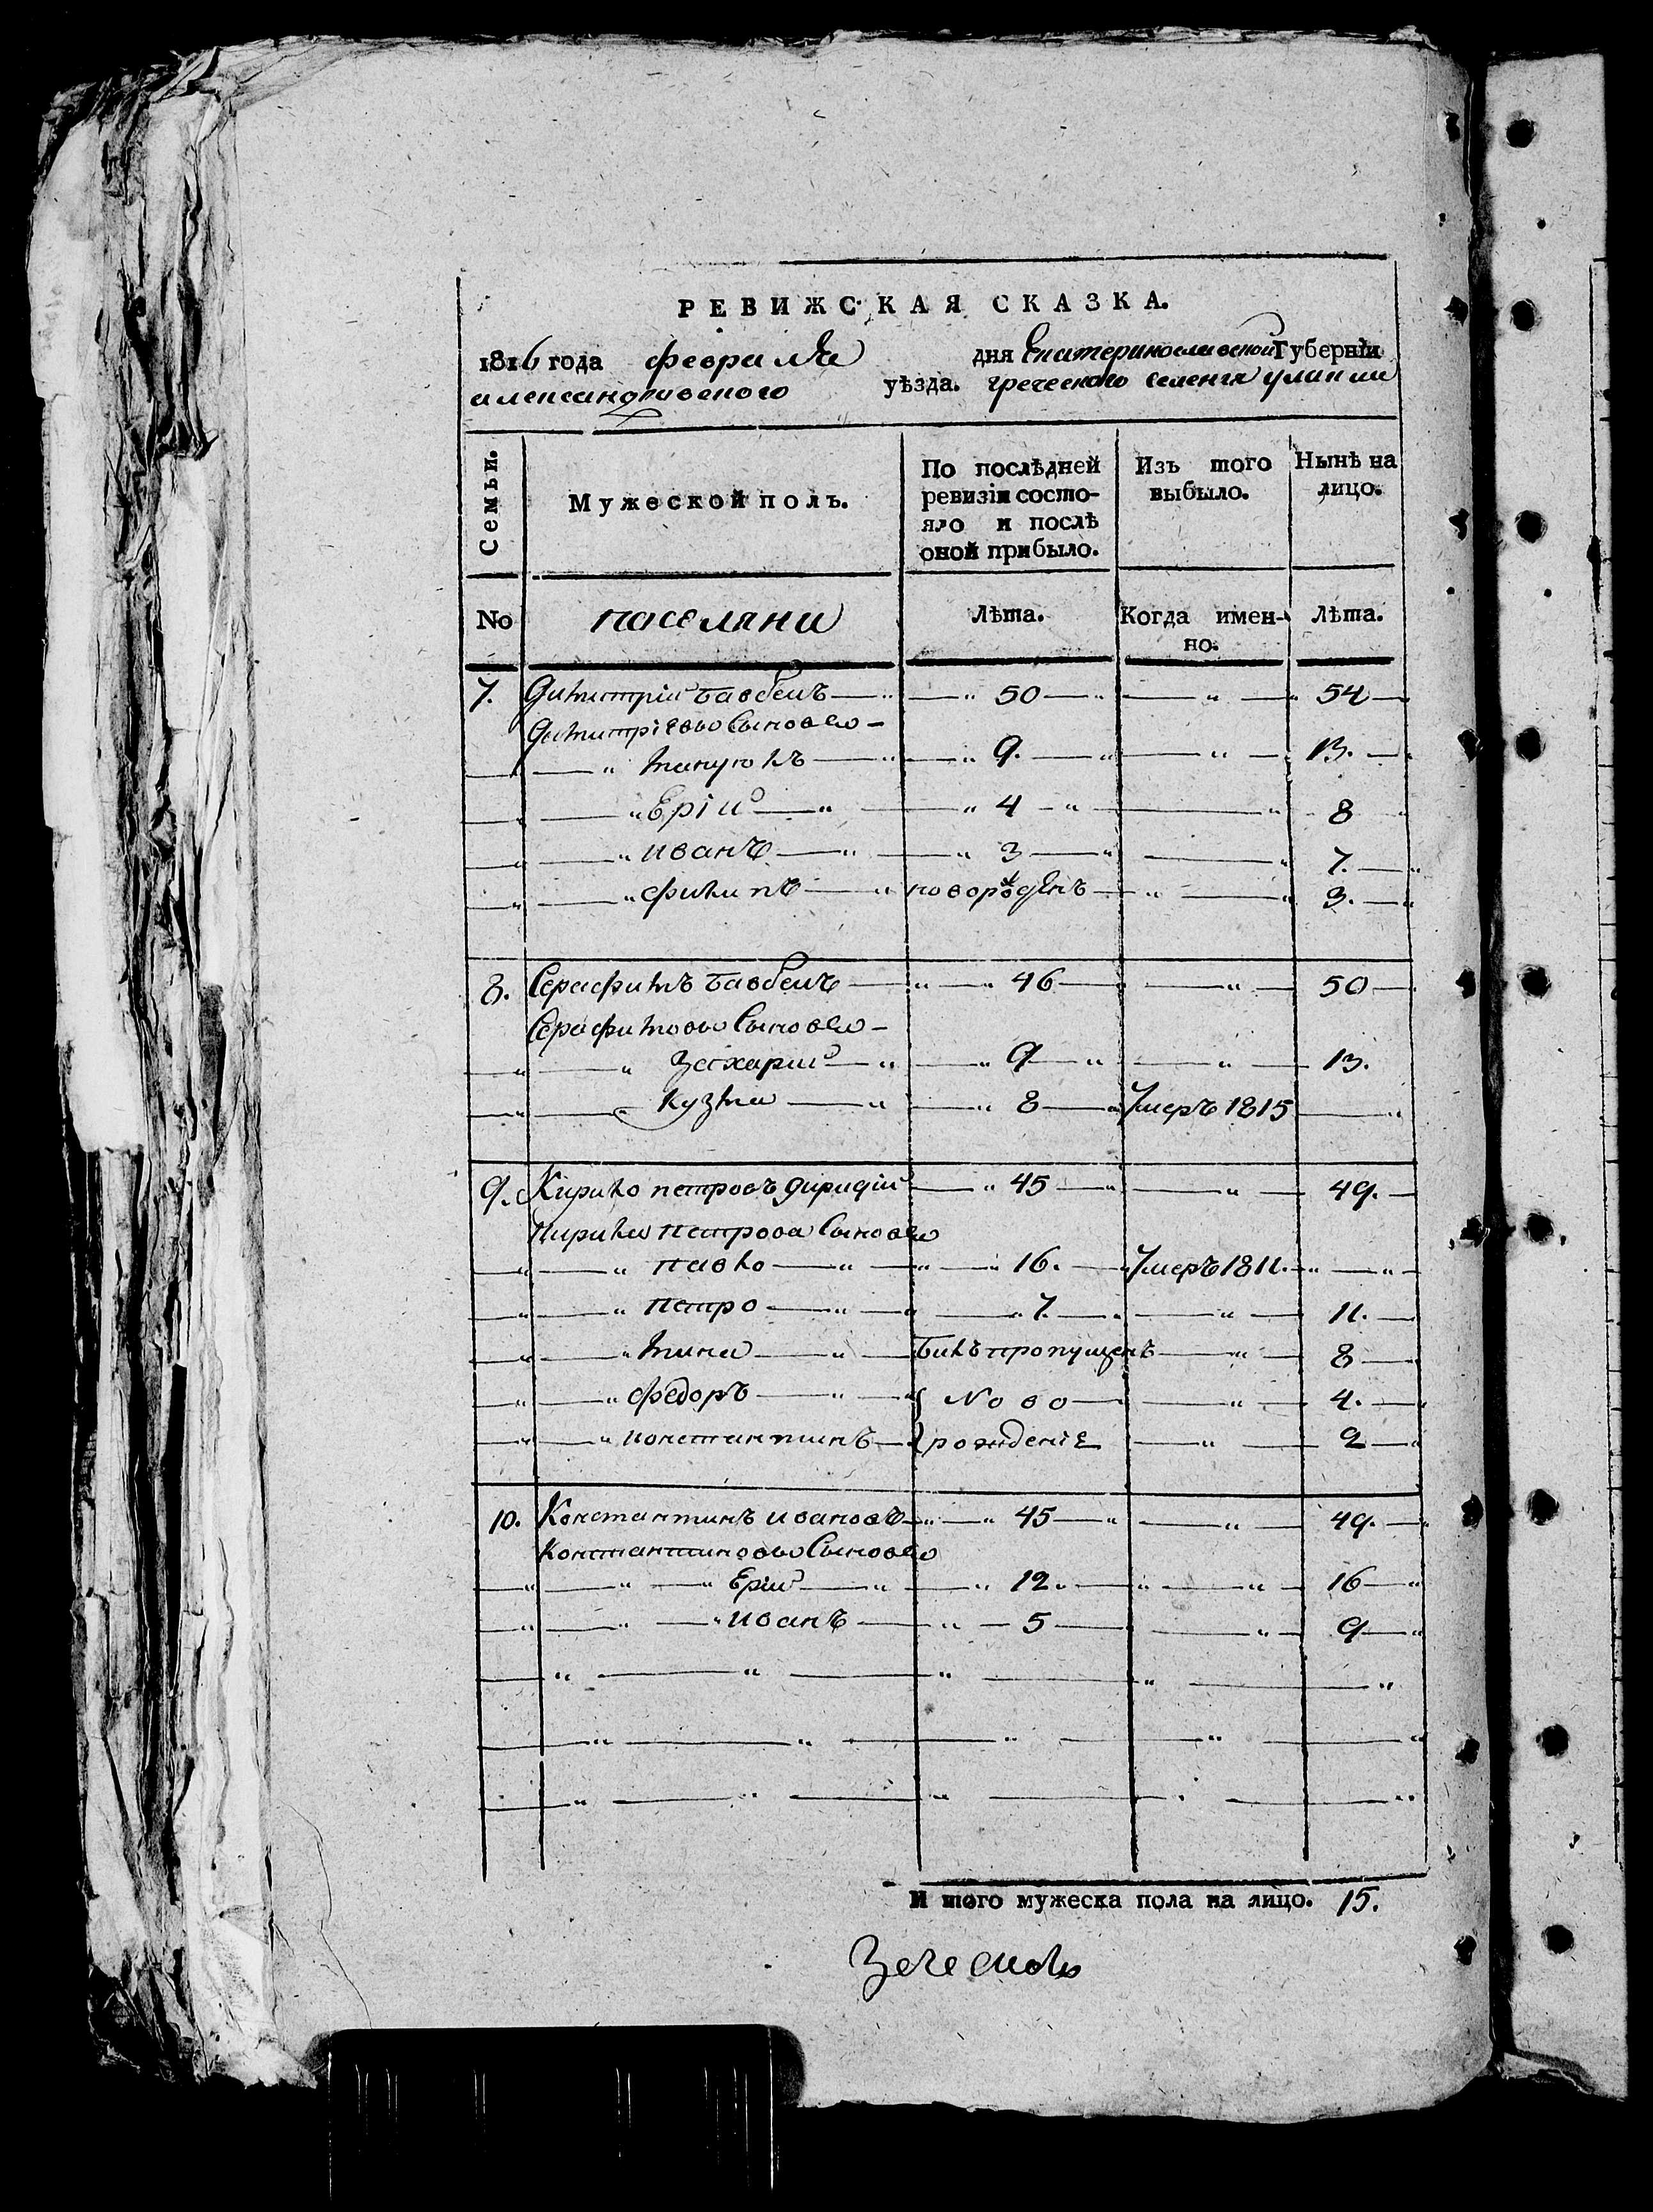 РЕВИЖСКАЯ СКАЗКА.
1816 года февраля дня Екатеринославской Губерніи
александровского уѣзда. греческого селенія улаклы
Семьи.
Мужеской полъ.
По послѣдней ревизіи состояло и послѣ оной прибыло.
Изъ того выбыло.
Нынѣ на лицо.
No
паселяни
Лѣта.
Когда именно.
Лѣта.
7. Димитрій 50 54
Димитріевы Сыновя
9. 13.
Ерій 4 8
иванъ 3 7.
филипъ новорожденъ 3.
8. Серафимъ 46 50
Серафимовы Сыновя
Захарий 9 13.
Кузма 8 Умеръ 1815
9. Кирико петровъ 45 49.
Кирика петрова Сыновя
павло 16. Умеръ 1811.
петро 7. 11.
мина билъ пропущенъ 8
федоръ Ново 4.
константинъ рожденіе 2
10. Константинъ ивановъ 45 49.
Константиновы Сыновя
Ерій 12. 16
иванъ 5 9
И того мужеска пола на лицо. 15.